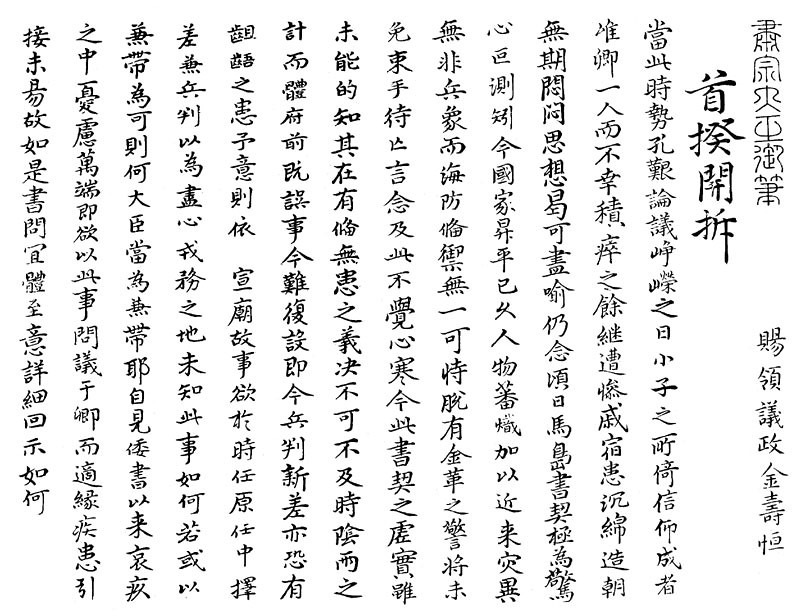 肅宗大王御筆
賜領議政金壽恒
首揆開拆
當此時勢孔艱論議崢嶸之日小子之所倚信仰成者
唯卿一人而不幸積瘁之餘繼遭慘戚宿患沉綿造朝
無期悶悶思想曷可盡喻仍念頃日馬島書契極為驚
心叵測矧今國家昇平已久人物蕃熾加以近来灾異
無非兵象而海防俻禦無一可恃脫有金革之警将未
免束手待亡言念及此不覺心寒今此書契之虛實雖
未能的知其在有俻無患之義決不可不及時陰雨之
計而體府前既誤事今難復設即今兵判新差亦恐有
齟齬之患予意則依 宣廟故事欲於時任原任中擇
差兼兵判以為盡心戎務之地未知此事如何若或以
兼帶為可則何大臣當為兼帶耶自見倭書以来哀疚
之中憂慮萬端即欲以此事問議于卿而適緣疾患引
接未易故如是書問冝體至意詳細回示如何